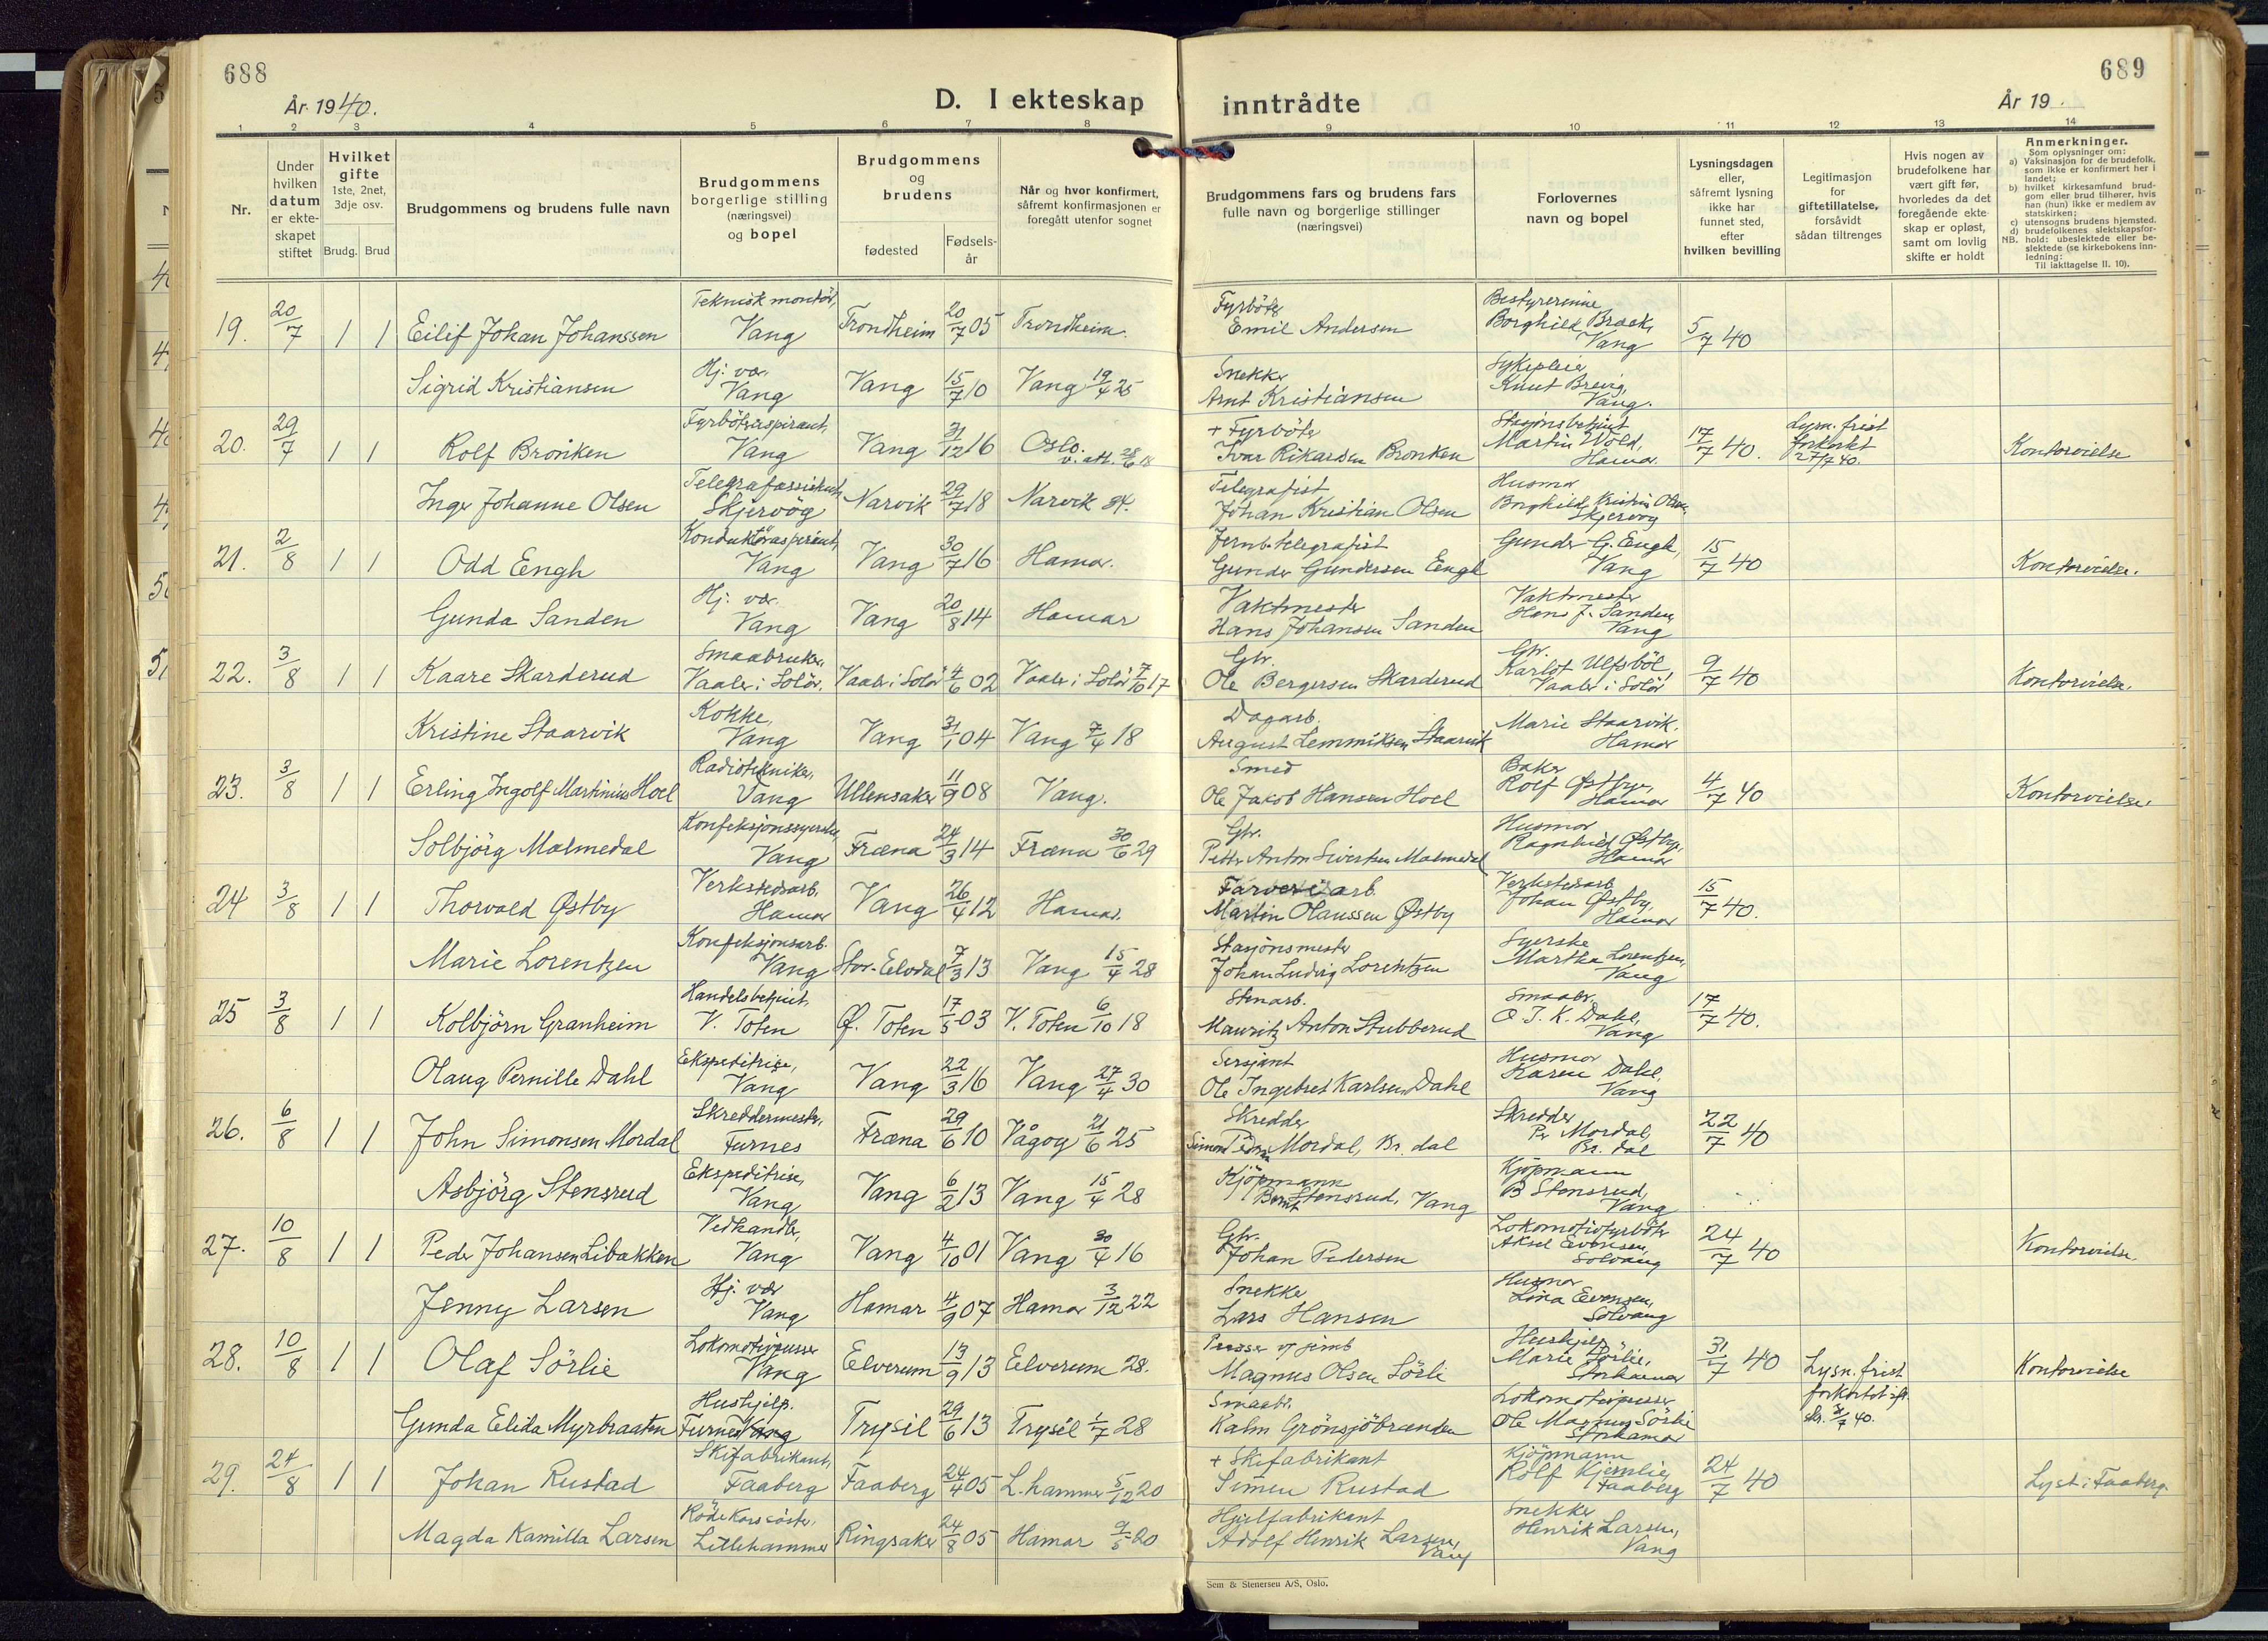 688
År 1940.
D. I ekteskap
inntrådte
689
År 19 .
1 2 3 4 5 6 7 8 9 10 11 12 13 14
Nr.
Under hvilken datum er ekteskapet stiftet
Hvilket gifte
1ste, 2net, 3dje osv.
Brudg. Brud
Brudgommens og brudens fulle navn
Brudgommens borgerlige stilling (næringsvei) og bopel
Brudgommens og brudens
fødested
Fødsels-år
Når og hvor konfirmert, såfremt konfirmasjonen er foregått utenfor sognet
Brudgommens fars og brudens fars fulle navn og borgerlige stillinger (næringsvei)
Forlovernes navn og bopel
Lysningsdagen eller, såfremt lysning ikke har funnet sted, efter hvilken bevilling
Legitimasjon for giftetillatelse, forsåvidt sådan tiltrenges
Hvis nogen av brudefolkene har vært gift før, hvorledes da det foregående ekteskap er opløst, samt om lovlig skifte er holdt
Anmerkninger.
Som oplysninger om:
a) Vaksinasjon for de brudefolk, som ikke er konfirmert her i landet;
b) hvilket kirkesamfund brudgom eller brud tilhører, hvis han (hun) ikke er medlem av statskirken;
c) utensogns brudens hjemsted.
d) brudefolkenes slektskapsforhold: ubeslektede eller beslektede (se kirkebokens innledning:
NB. Til iakttagelse II. 10).
19. 20/7 1 1 Eilif Johan Johanssen Teknisk montör, Vang Trondheim 20/7 05 Trondheim. Fyrböter Emil Andersen Bestyrerinne Borghild Braek, Vang 5/7 40
Sigrid Kristiansen Hj. vær. Vang Vang 15/7 10 Vang 19/4 25 Snekker Arnt Kristiansen Sykepleier Knut Brevig, Vang.
20. 29/7 1 1 Rolf Bronken Fyrböteraspirant, Vang Vang 31/12 16 Oslo. v. att. 28/6 + Fyrböter Ivar Rikardsen Bronken Stasjonsbetjent Martin Wold, Hamar. 17/7 40. Lysn. frist forkortet 27/7 40. Kontorvielse
Inger Johanne Olsen Telegrafassistent, Skjervög Narvik 29/7 18 Narvik 34. Telegrafist Johan Kristian Olsen Husmor Borghild Kristin Olsen, Skjervøg
21. 2/8 1 1 Odd Eengh Konduktöraspirant, Vang Vang 30/7 16 Hamar. Jernb. telegrafist Gunder Gundersen Eengh Gunder G. Eengh, Vang 15/7 40 Kontorvielse.
Gunda Sanden Hj: vær. Vang Vang 20/8 14 Hamar Vaktmester Hans Johansen Sanden Vaktmester Hans J. Sanden, Vang
22. 3/8 1 1 Kaare Skarderud Smaabruker, Vaaler i Solör. Vaaler i Solör 4/6 02 Vaaler i Solör 7/10 17 Gbr. Ole Bergersen Skarderud Gbr. Karlot Ulfsböl, Vaaler i Solör 9/7 40 Kontorvielse.
Kristine Staarvik Kokke, Vang Vang 31/1 04 Vang 7/4 18 Dagarb. August Lemmiksen Staarvik Marie Staarvik, Hamar
23. 3/8 1 1 Erling Ingolf Martinius Hoel Radiotekniker, Vang Ullensaker 11/9 08 Vang. Smed Ole Jakob Hansen Hoel Baker Rolf Østbye, Hamar 4/7 40 Kontorvielse.
Solbjörg Malmedal Konfeksjonssyerske, Vang Fræna 24/3 14 Fræna 30/6 29 Gbr. Petter Anton Sivertsen Malmedal Husmor Ragnhild Østbye, Hamar
24 3/8 1 1 Thorvald Østby Verkstedsarb. Hamar Vang 26/4 12 Hamar. Farveriarb. Martin Olaussen Østby Verkstedsarb. Johan Østby, Hamar 15/7 40.
Marie Lorentzen Konfeksjonsarb. Vang Stor-Elvdal 7/3 13 Vang 15/4 28 Stasjonsmester Johan Ludvig Lorentzen Syerske Martha Lorentzen, Vang
25 3/8 1 1 Kolbjörn Granheim Handelsbetjent, V. Toten Ø. Toten 17/5 03 V. Toten 6/10 18 Stenarb. Mauritz Anton Stubberud Smaabr. O. I. K. Dahl, Vang 17/7 40.
Olaug Pernille Dahl Ekspeditrise, Vang Vang 22/3 16 Vang 27/4 30 Sersjant Ole Ingebret Karlsen Dahl Husmor Karen Dahl, Vang
26. 6/8 1 1 John Simonsen Mordal Skreddermester, Furnes Fræna 29/6 10 Vågøy 21/6 25 Skredder Simon Peder Mordal, Br. dal Skredder Per Mordal, Br. dal 22/7 40
Asbjörg Stensrud Ekspeditrise, Vang Vang 6/2 13 Vang 15/4 28 Kjöpmann Bernt Stensrud, Vang Kjöpmann B Stensrud, Vang
27. 10/8 1 1 Peder Johansen Libakken Vedhandler, Vang Vang 4/10 01 Vang 30/4 16 Gbr. Johan Pedersen Lokomotivfyrböter Aksel Evensen, Solvang 24/7 40 Kontorvielse.
Jenny Larsen Hj. vær Vang Hamar 4/9 07 Hamar 3/12 22 Snekker Lars Hansen Husmor Lina Evensen, Solvang
28. 10/8 1 1 Olaf Sörlie Lokomotivpusser Vang Elverum 13/9 13 Elverum 28. Pusser v/ jernb Magnus Olsen Sörli Hushjelp Marie Sörlie, Storhamar 31/7 40 Lysn. frist forkortet ift. skr. 31/7 40. Kontorvielse
Gunda Elida Myrbraaten Hushjelp. Furnes Vang Trysil 29/6 13 Trysil 1/7 28 Smaabr. Kalm Grönsjöbrænden Lokomotivpusser Ole Magnus Sörlie Storhamar
29. 24/8 1 1 Johan Rustad Skifabrikant, Faaberg Faaberg 24/4 05 L.hammer 5/12 20 + Skifabrikant Simen Rustad Kjöpmann Rolf Kjernlie, Faaberg 24/7 40 Lyst i Faaberg.
Magda Kamilla Larsen Röde Kors söster, Lillehammer Ringsaker 24/8 05 Hamar 9/5 20 Hjulfabrikant Adolf Henrik Larsen, Vang Snekker Henrik Larsen, Vang
Sem & Stenersen A/S, Oslo.